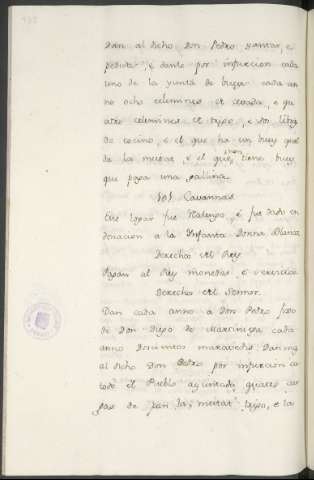 Dan al dicho Don Pedro yantar, e
pedido e danle por infurcion cada
uno de la yunta de bueys cada an
no ocho celemines de cevada, e qu
atro celemines de trigo, e dos libras
de tocino, e el que ha un buey que
de la meitat, e el que non tiene buey
que paga una gallina.
Las Cavannas
Este logar fue Realengo, é fue dado en
donacion a la Infanta Donna Blanca
Derechos del Rey
Pagan al Rey monedas, e servicios
Derechos del Sennor.
Dan cada anno a Don Pedro fijo
de Don Diego de Marcinega cada
anno Docientos maravedis Dan mas
al dicho Don Pedro por infurcion
todo el Pueblo
pase de pan la meitat trigo, e la